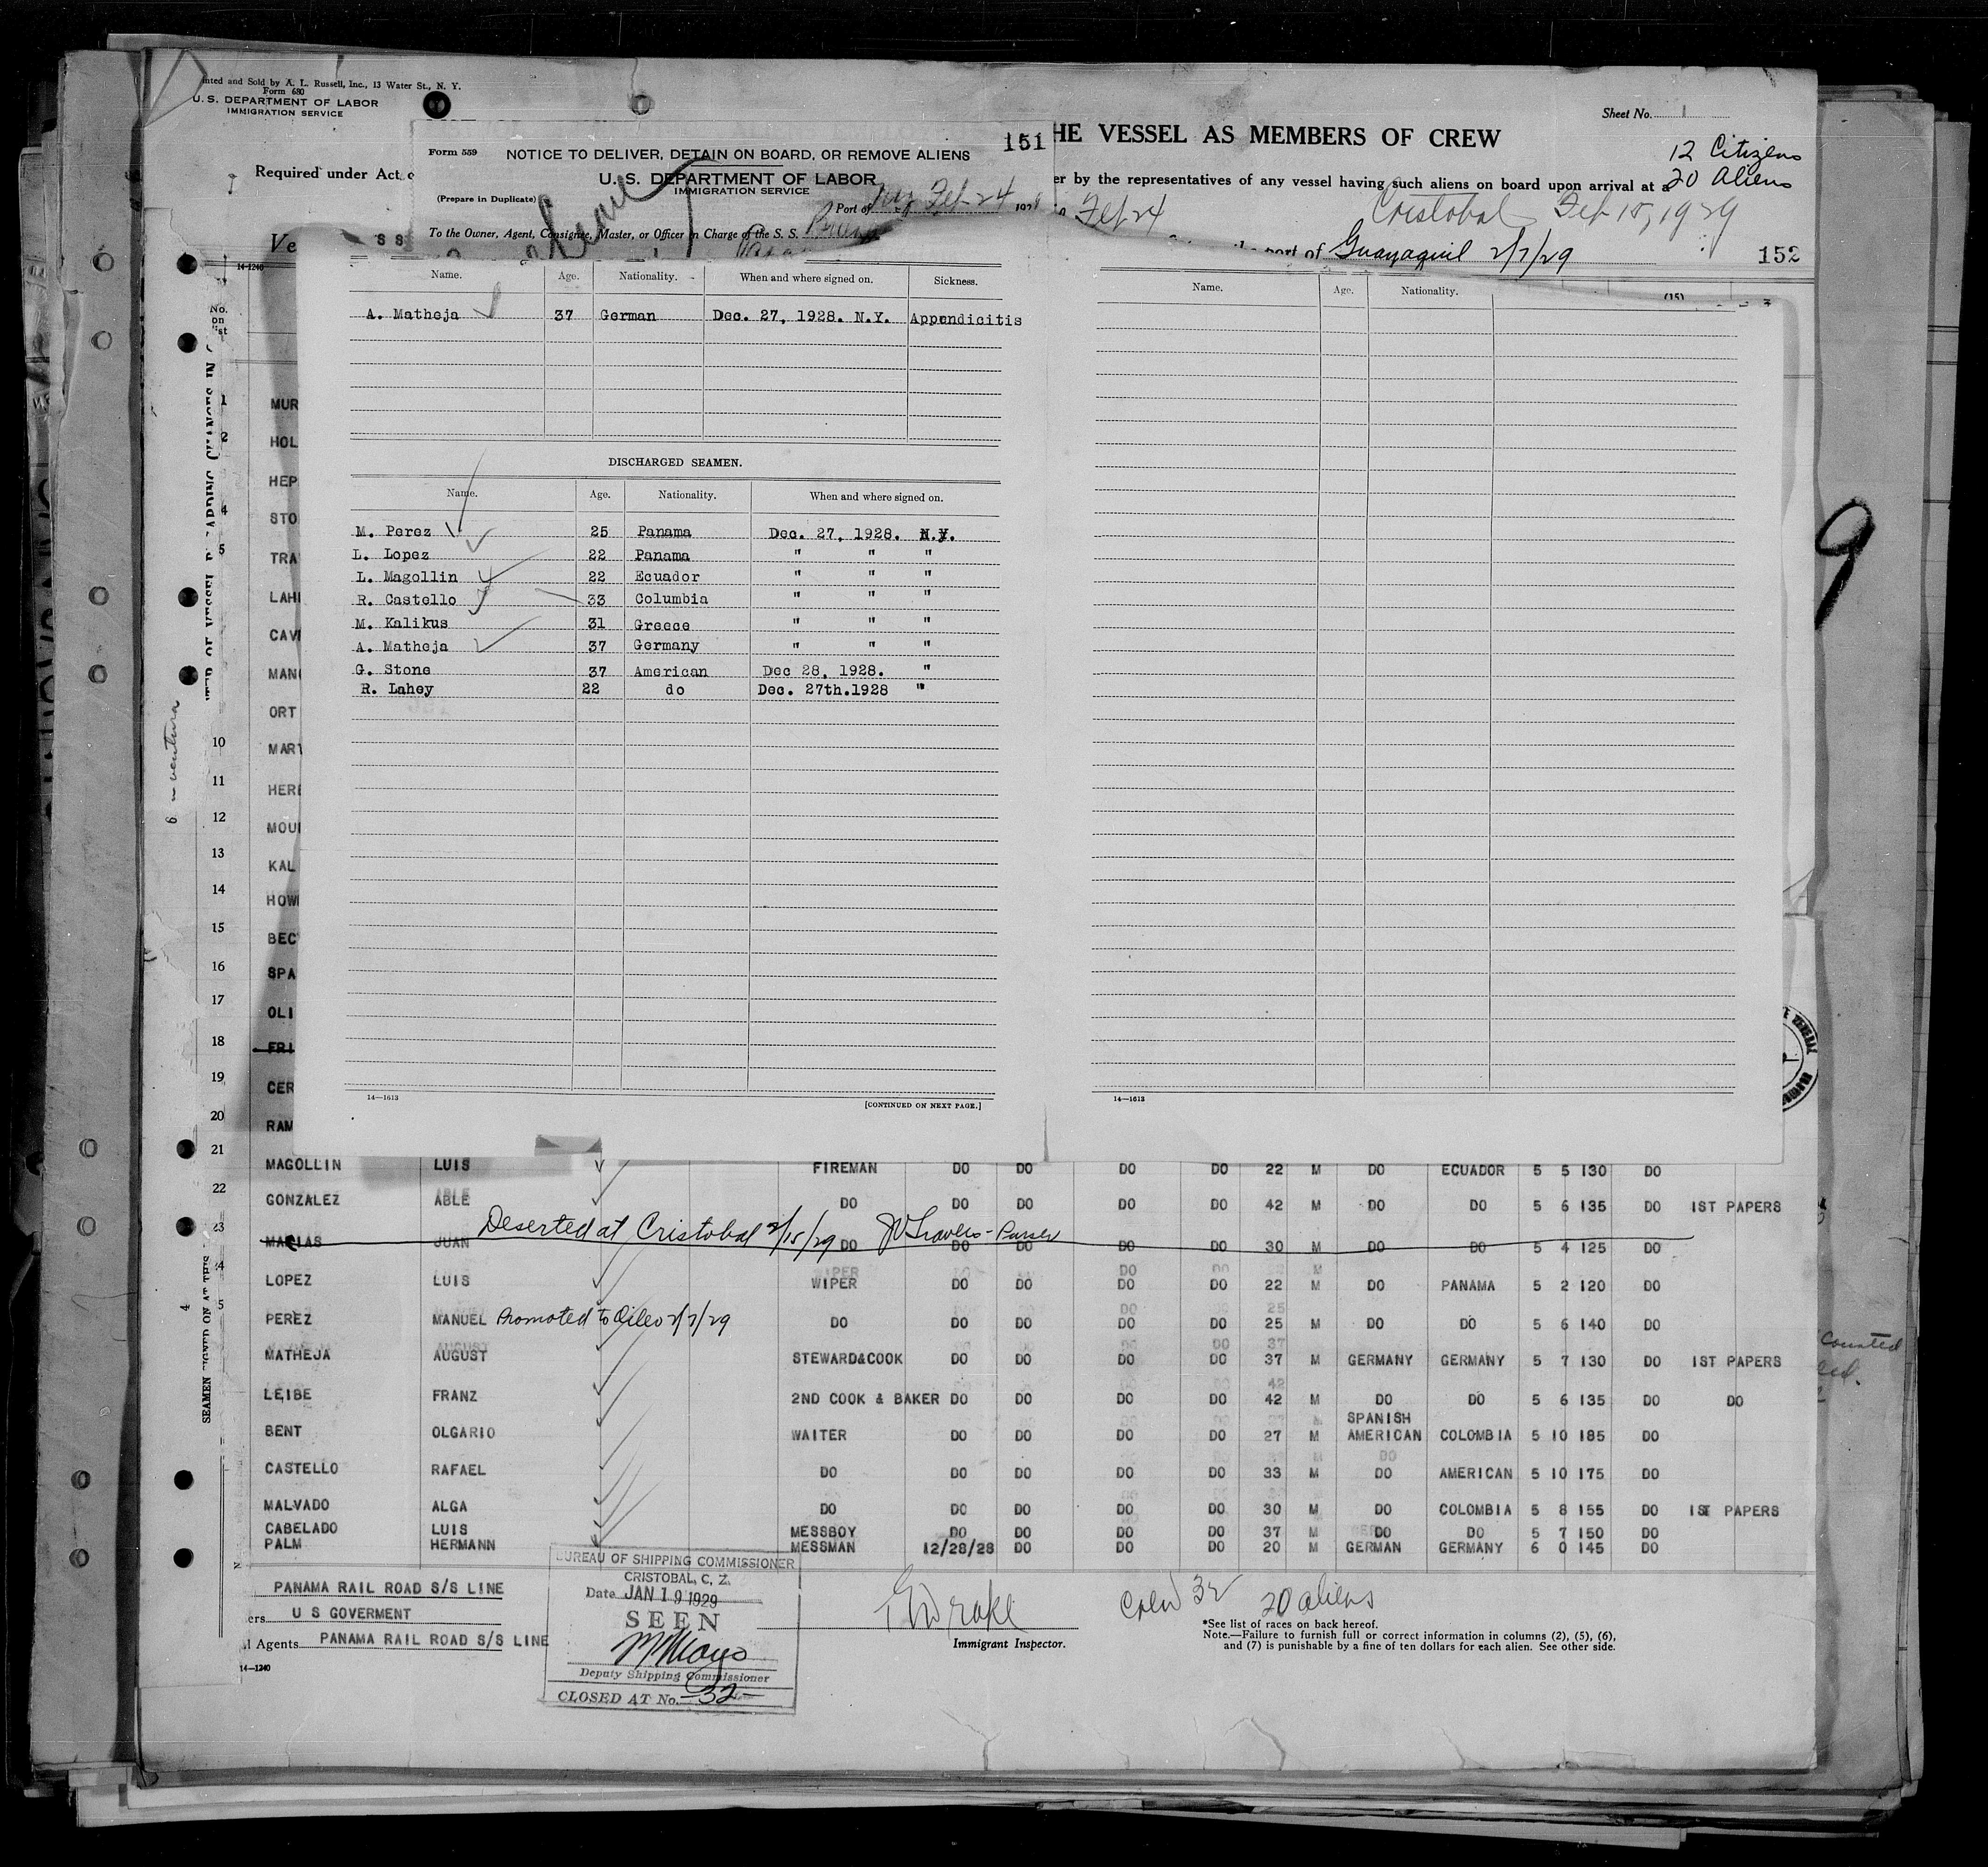 Printed and Sold by A. L. Russell, Inc., 13 Water St., N. Y.
Form 680
U. S. DEPARTMENT OF LABOR
IMMIGRATION SERVICE
Required under Act
Sheet No. 1
HE VESSEL AS MEMBERS OF CREW
12 Citizens
20 Aliens
er by the representatives of any vessel having such aliens on board upon arrival at a
Feb 24
Cristobal Feb 15, 1929
port of Guayaquil 2/7/29
152
151
Form 559
NOTICE TO DELIVER, DETAIN ON BOARD, OR REMOVE ALIENS
U. S. DEPARTMENT OF LABOR
IMMIGRATION SERVICE
(Prepare in Duplicate)
Port of NY Feb 24 192
To the Owner, Agent, Consignee, Master, or Officer in Charge of the S. S.
Ve
S S
14-1240
No. on list
Name. Age. Nationality. When and where signed on. Sickness.
A. Matheja 37 German Dec. 27, 1928. N.Y. Appendicitis
DISCHARGED SEAMEN.
Name. Age. Nationality. When and where signed on.
M. Perez 25 Panama Dec. 27, 1928. N.Y.
L. Lopez 22 Panama " " "
L. Magollin 22 Ecuador " " "
R. Castello 33 Columbia " " "
M. Kalikus 31 Greece " " "
A. Matheja 37 Germany " " "
G. Stone 37 American Dec 28, 1928. "
R. Lahey 22 do Dec. 27th.1928 "
14—1613
[CONTINUED ON NEXT PAGE.]
Name. Age. Nationality.
(15)
14—1613
9
1 MUR
2 HOL
HEP
4 STO
5 TRA
LAH
CAV
MAN
ORT
10 MART
11 HERE
12 MOU
13 KAL
14 HOW
15 BEC
16 SPA
17 OLI
18 FRI
19 CER
20 RAM
21 MAGOLLIN LUIS FIREMAN DO DO DO DO 22 M DO ECUADOR 5 5 130 DO
22 GONZALEZ ABLE DO DO DO DO DO 42 M DO DO 5 6 135 DO 1ST PAPERS
Deserted at Cristobal 2/15/29 JV Travers - Purser
23 MACIAS JUAN DO DO DO DO DO 30 M DO DO 5 4 125 DO
LOPEZ LUIS WIPER DO DO DO DO 22 M DO PANAMA 5 2 120 DO
PEREZ MANUEL Promoted to Oiler 2/7/29 DO DO DO DO DO 25 M DO DO 5 6 140 DO
MATHEJA AUGUST STEWARD&COOK DO DO DO DO 37 M GERMANY GERMANY 5 7 130 DO 1ST PAPERS
LEIBE FRANZ 2ND COOK & BAKER DO DO DO DO 42 M DO DO 5 6 135 DO DO
BENT OLGARIO WAITER DO DO DO DO 27 M SPANISH AMERICAN COLOMBIA 5 10 185 DO
CASTELLO RAFAEL DO DO DO DO DO 33 M DO AMERICAN 5 10 175 DO
MALVADO ALGA DO DO DO DO DO 30 M DO COLOMBIA 5 8 155 DO 1ST PAPERS
CABELADO LUIS MESSBOY DO DO DO DO 37 M DO DO 5 7 150 DO
PALM HERMANN MESSMAN 12/28/28 DO DO DO 20 M GERMAN GERMANY 6 0 145 DO
PANAMA RAIL ROAD S/S LINE
ers U S GOVERMENT
l Agents PANAMA RAIL ROAD S/S LINE
14—1240
BUREAU OF SHIPPING COMMISSIONER
CRISTOBAL, C. Z.
Date JAN 19 1929
SEEN
Deputy Shipping Commissioner
CLOSED AT No. 32
Immigrant Inspector.
Crew 32 20 aliens
*See list of races on back hereof.
Note.—Failure to furnish full or correct information in columns (2), (5), (6),
and (7) is punishable by a fine of ten dollars for each alien. See other side.